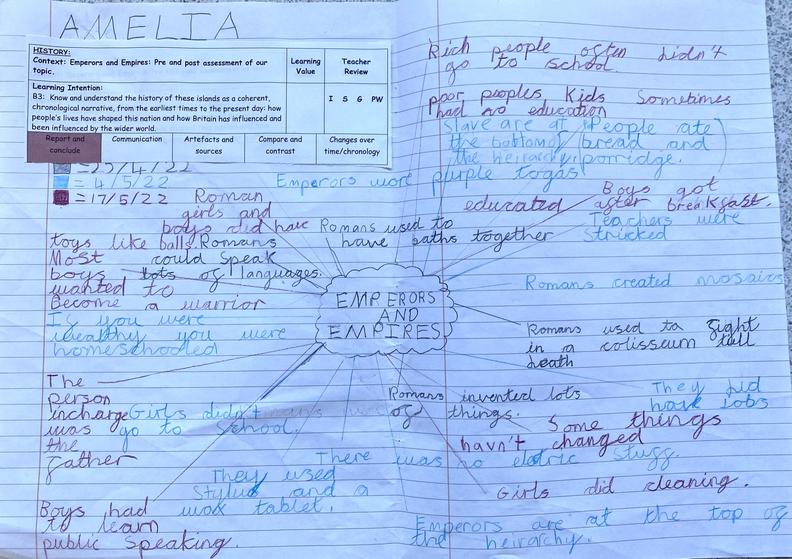 AMELIA
HISTORY:
Context: Emperors and Empires: Pre and post assessment of our topic.
Learning Value
Teacher Review
Learning Intention:
B3: Know and understand the history of these islands as a coherent,
chronological narrative, from the earliest times to the present day: how
people's lives have shaped this nation and how Britain has influenced and
been influenced by the wider world.
I S G PW
Report and conclude
Communication
Artefacts and sources
Compare and contrast
Changes over time/chronology
/4/22
= 4/5/22
= 17/5/22
Rich people often didn't
go to school.
poor peoples Kids Sometimes
had no education
Slave are at
the bottom of
the heirarchy
People ate
bread and
porridge.
Emperors wore purple togas
Boys got
educated after breakfast.
Teachers were
Stricked
Roman
girls and
boys did have
toys like balls.
Romans used to
have baths together
Romans
could Speak
lots of languages.
Most
boys
wanted to
Become a warrior
Romans created mosaics
EMPERORS
AND
EMPIRES
If you were
wealthy you were
homeschooled
Romans used to fight
in a coliseum till
death
The
person
incharge
was
the
father
Girls didn't
go to School.
Romans invented lots
of things.
They did
have jobs
Some things
havn't changed
There was no eletric stuff.
They used
Stylus and a
wax tablet.
Girls did cleaning.
Boys had
to learn
public Speaking.
Emperors are at the top of
the heirarchy.